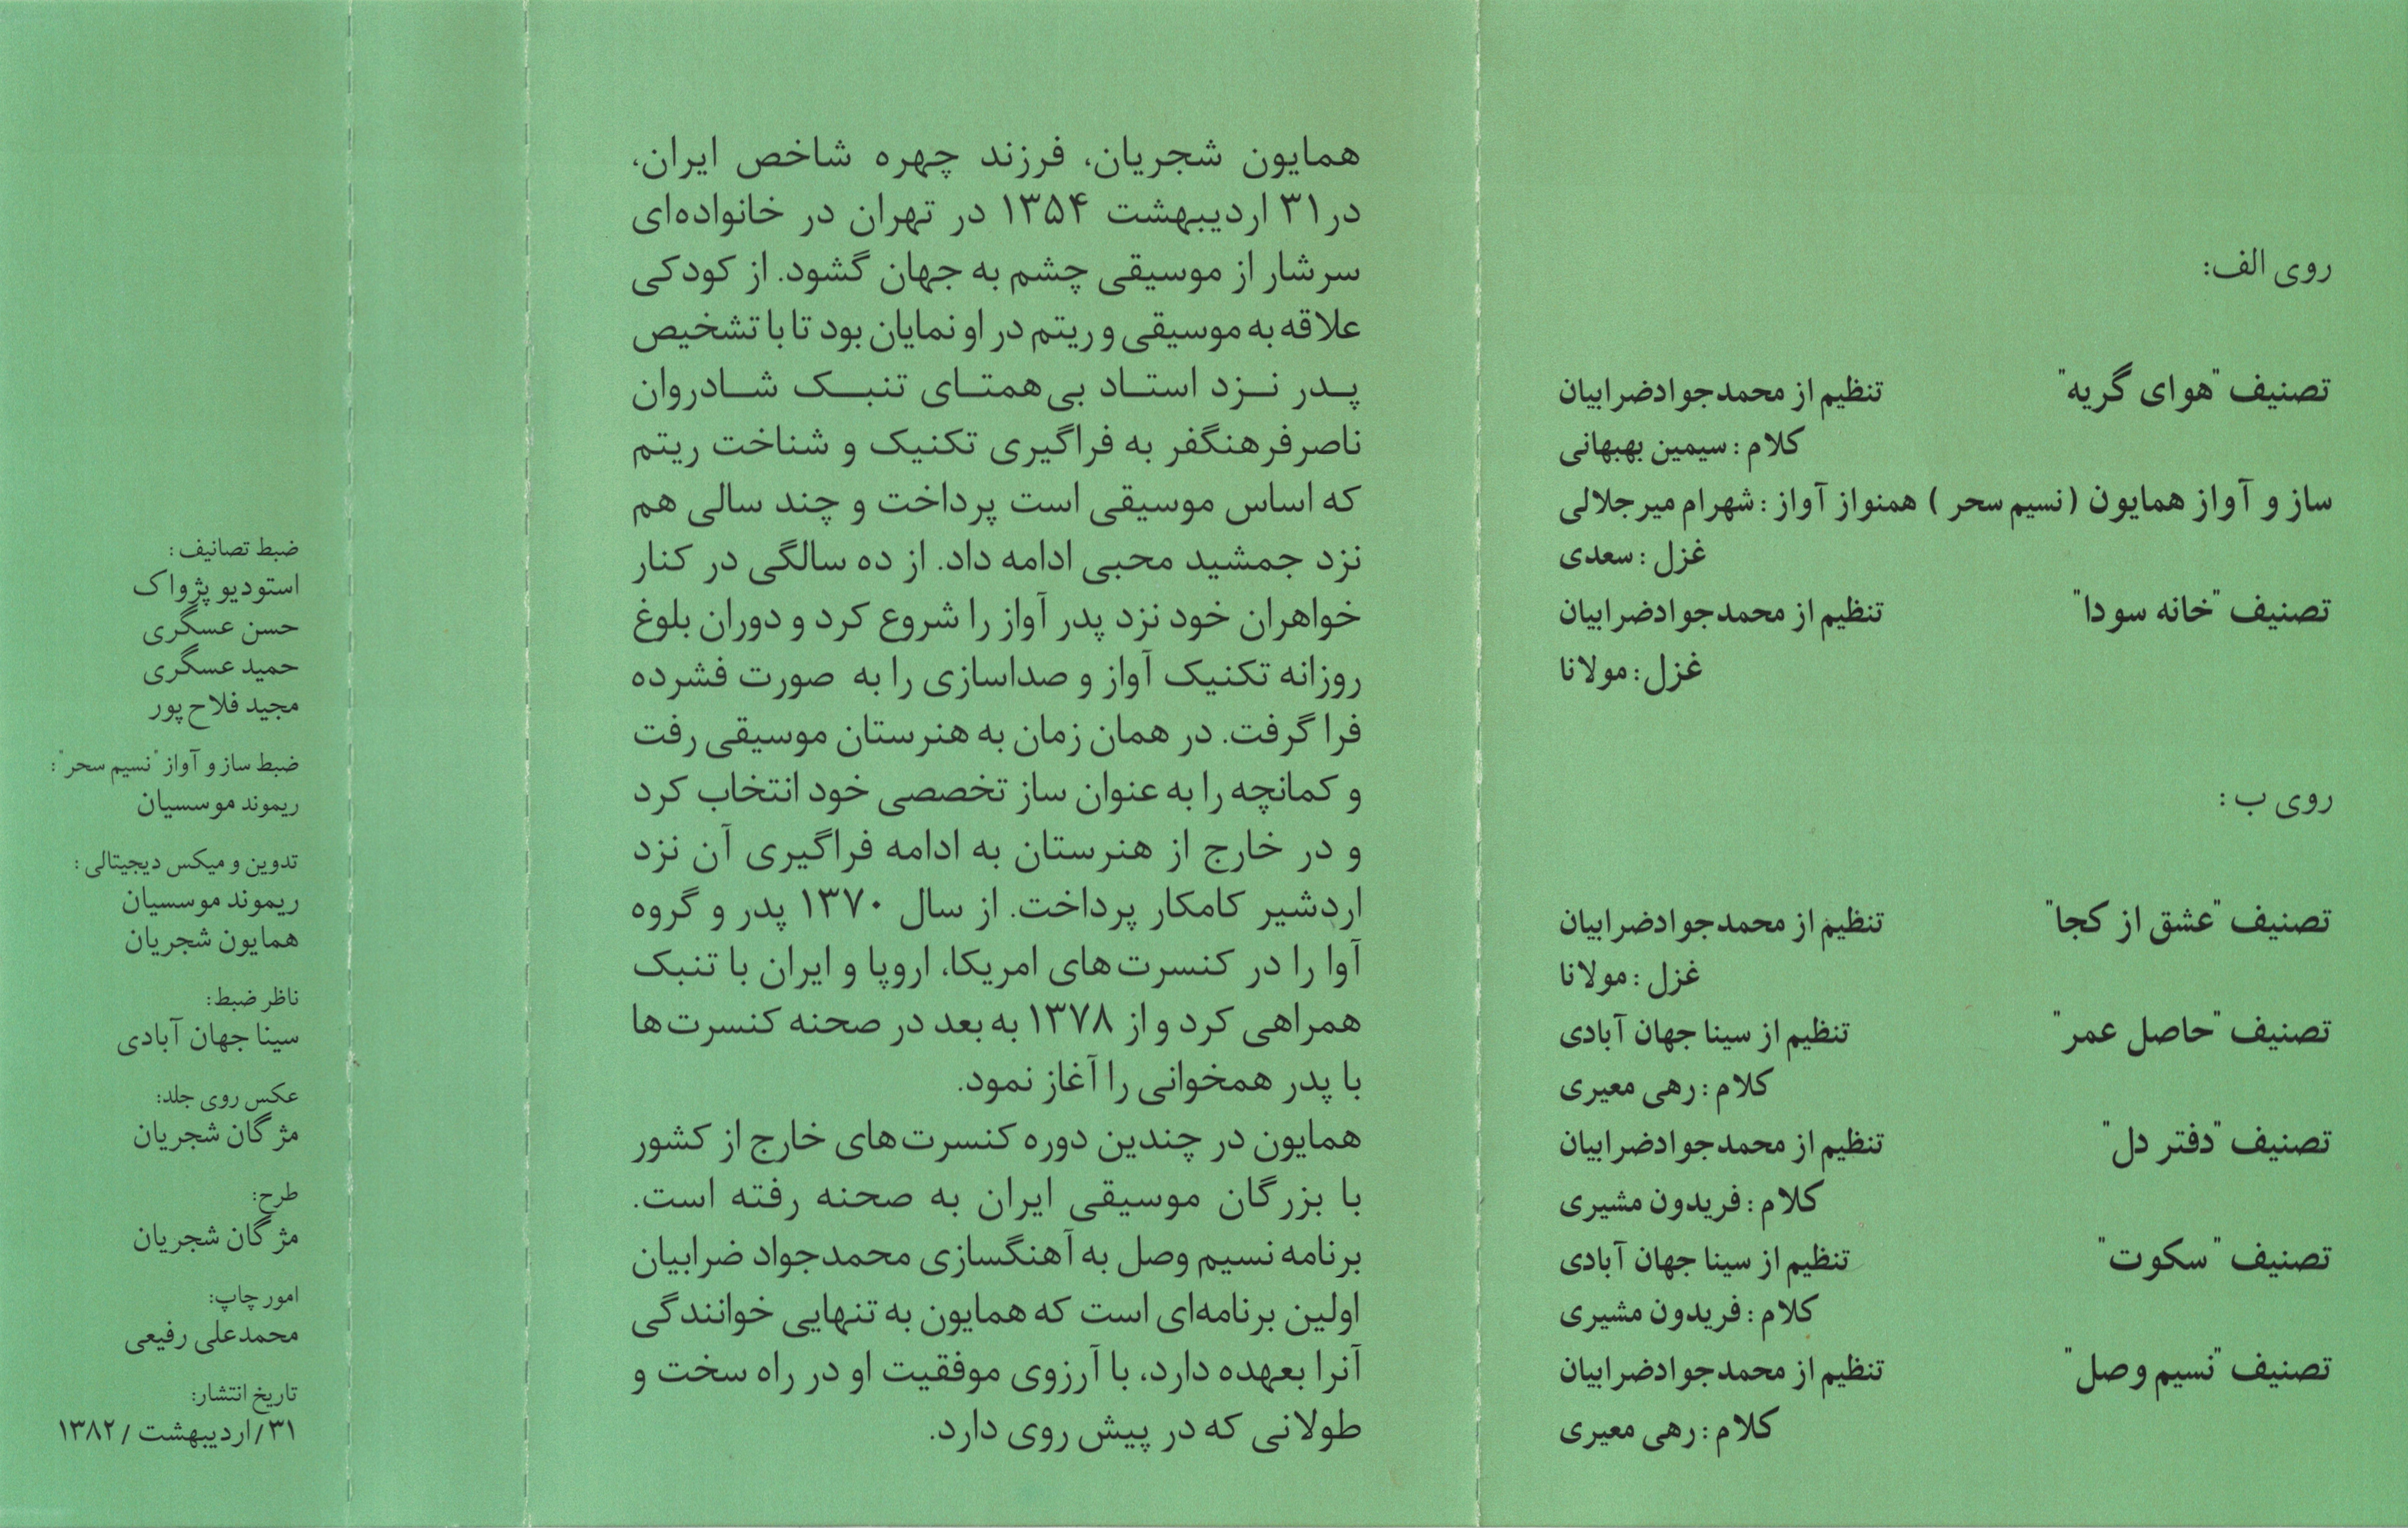 روی الف:
تصنیف "هوای گریه" تنظیم از محمدجوادضرابیان
کلام : سیمین بهبهانی
ساز و آواز همایون (نسیم سحر ) همنواز آواز : شهرام میرجلالی
غزل : سعدی
تصنیف "خانه سودا" تنظیم از محمدجوادضرابیان
غزل : مولانا
روی ب :
تصنیف "عشق از کجا" تنظیم از محمدجوادضرابیان
غزل : مولانا
تصنیف "حاصل عمر" تنظیم از سینا جهان آبادی
کلام : رهی معیری
تصنیف "دفتر دل" تنظیم از محمدجوادضرابیان
کلام : فریدون مشیری
تصنیف "سکوت" تنظیم از سینا جهان آبادی
کلام : فریدون مشیری
تصنیف "نسیم وصل" تنظیم از محمدجوادضرابیان
کلام : رهی معیری
همایون شجریان، فرزند چهره شاخص ایران،
در۳۱ اردیبهشت ۱۳۵۴ در تهران در خانواده‌ای
سرشار از موسیقی چشم به جهان گشود. از کودکی
علاقه به موسیقی و ریتم در او نمایان بود تا با تشخیص
پـدر نـزد استـاد بی‌همتـای تنبـک شـادروان
ناصرفرهنگفر به فراگیری تکنیک و شناخت ریتم
که اساس موسیقی است پرداخت و چند سالی هم
نزد جمشید محبی ادامه داد. از ده سالگی در کنار
خواهران خود نزد پدر آواز را شروع کرد و دوران بلوغ
روزانه تکنیک آواز و صداسازی را به صورت فشرده
فرا گرفت. در همان زمان به هنرستان موسیقی رفت
و کمانچه را به عنوان ساز تخصصی خود انتخاب کرد
و در خارج از هنرستان به ادامه فراگیری آن نزد
اردشیر کامکار پرداخت. از سال ۱۳۷۰ پدر و گروه
آوا را در کنسرت‌های امریکا، اروپا و ایران با تنبک
همراهی کرد و از ۱۳۷۸ به بعد در صحنه کنسرت‌ها
با پدر همخوانی را آغاز نمود.
همایون در چندین دوره کنسرت‌های خارج از کشور
با بزرگان موسیقی ایران به صحنه رفته است.
برنامه نسیم وصل به آهنگسازی محمدجواد ضرابیان
اولین برنامه‌ای است که همایون به تنهایی خوانندگی
آنرا بعهده دارد، با آرزوی موفقیت او در راه سخت و
طولانی که در پیش روی دارد.
ضبط تصانیف :
استودیو پژواک
حسن عسگری
حمید عسگری
مجید فلاح‌پور
ضبط ساز و آواز "نسیم سحر":
ریموند موسسیان
تدوین و میکس دیجیتالی :
ریموند موسسیان
همایون شجریان
ناظر ضبط:
سینا جهان آبادی
عکس روی جلد:
مژگان شجریان
طرح:
مژگان شجریان
امور چاپ:
محمدعلی رفیعی
تاریخ انتشار:
۳۱/اردیبهشت /۱۳۸۲